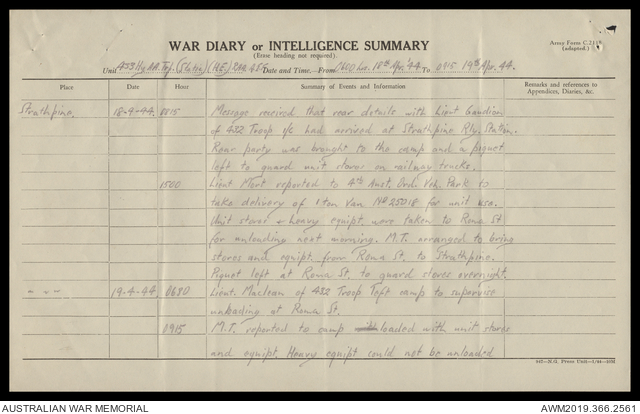 Army Form C.2118
(adapted.)
WAR DIARY or INTELLIGENCE SUMMARY
(Erase heading not required)
Unit 433 Hy AA Trp. (Static) Date and Time.—From 0600 hrs. 18th Apr. '44 To 0915 19th Apr. 44.
Place Date Hour Summary of Events and Information Remarks and references to Appendices, Diaries, &c.
Strathpine. 18-4-44. 0815 Message received that rear details with Lieut
of 432 Troop i/c had arrived at Strathpine Rly. Station.
Rear party was brought to the camp and a piquet
left to guard unit stores on railway trucks.
1500 Lieut Mort reported to 4th Aust. Ord. Veh. Park to
take delivery of 1 ton Van No 25018 for unit use.
Unit stores & heavy equipt. were taken to Roma St
for unloading next morning. M.T. arranged to bring
stores and equipt. from Roma St. to Strathpine.
Piquet left at Roma St. to guard stores overnight.
— " — 19-4-44. 0630 Lieut. Maclean of 432 Troop left camp to supervise
unloading at Roma St.
0915 M.T. reported to camp loaded with unit stores
and equipt. Heavy equipt could not be unloaded
AUSTRALIAN WAR MEMORIAL
AWM2019.366.2561